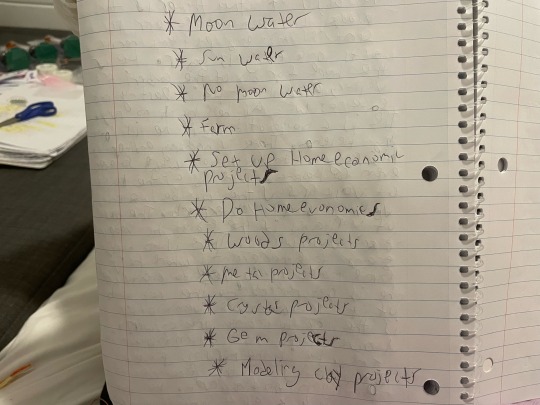 * Moon water
* Sun water
* No moon water
* Farm
* Set up Homeeconomic
projects
* Do Homeevonomics
* Woods projects
* metal projects
* Crystal projects
* Gem projects
* Modeling clay projects